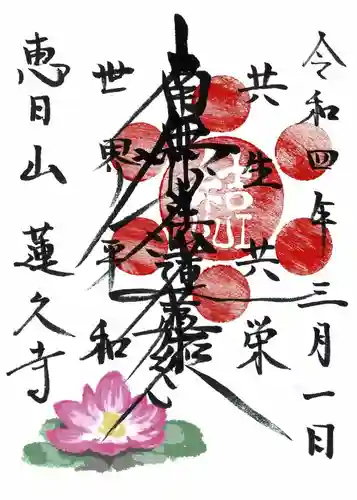 令和四年三月一日
共生共栄
南無妙法蓮華経
世界平和
恵日山 蓮久寺